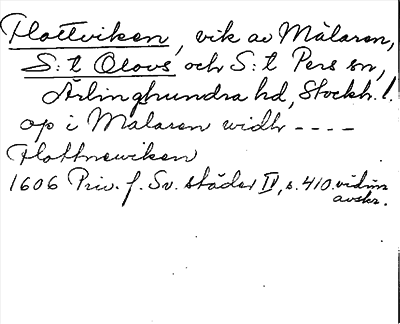 Flottviken, vik av Mälaren,
S:t Olovs och S:t Pers sn,
Ärlinghundra hd, Stockh. l.
op i Målaren widh ----
Flottnewiken
1606 Priv. f. Sv. städer IV, s. 410. vidim
avskr.